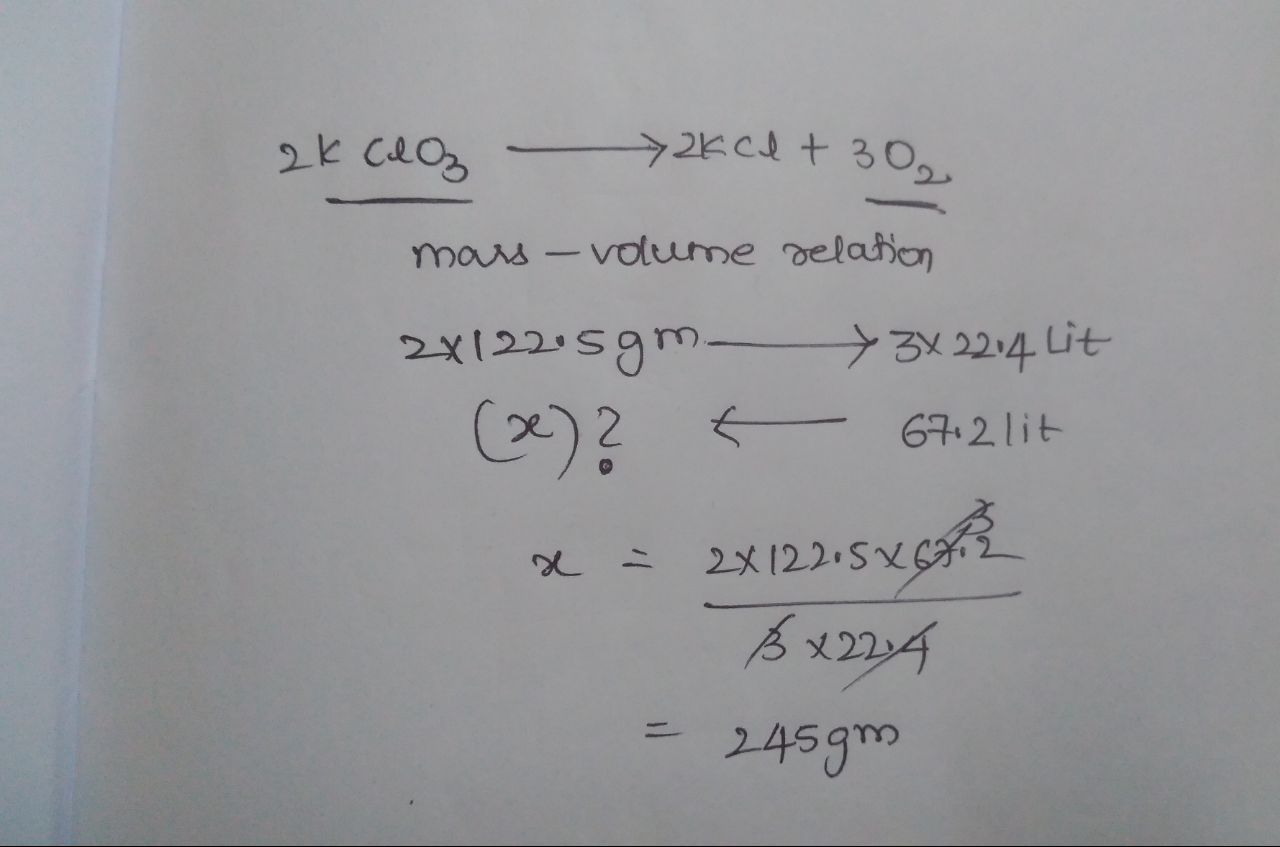 2KClO3 ⟶ 2KCl + 3O2
mass – volume relation
2x122.5gm ⟶ 3x22.4 Lit
(x)? ⟵ 67.2lit
3
x = 2x122.5x67.2
3x22.4
= 245gm